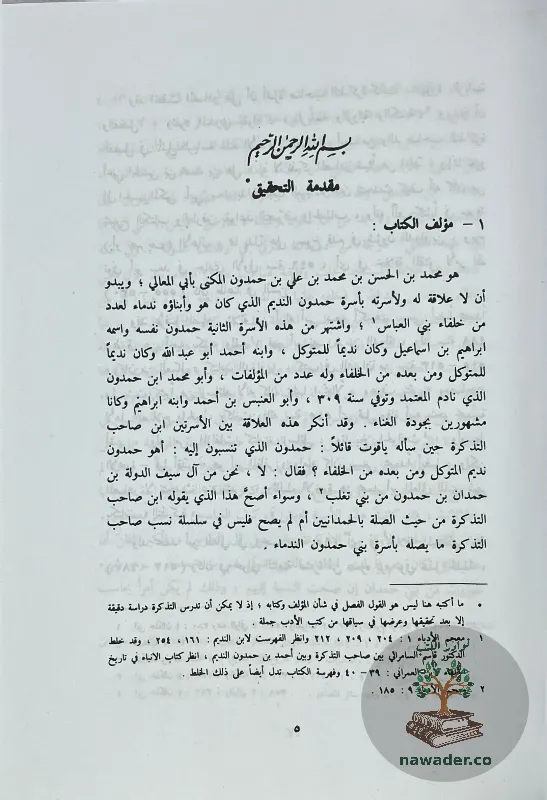 بسم الله الرحمن الرحيم
مقدمة التحقيق*
١ – مؤلف الكتاب :
هو محمد بن الحسن بن محمد بن علي بن حمدون المكنى بأبي المعالي ؛ ويبدو
أن لا علاقة له ولأسرته بأسرة حمدون النديم الذي كان هو وأبناؤه ندماء لعدد
من خلفاء بني العباس١ ؛ واشتهر من هذه الأسرة الثانية حمدون نفسه واسمه
ابراهيم بن اسماعيل وكان نديماً للمتوكل ، وابنه أحمد أبو عبد الله وكان نديماً
للمتوكل ومن بعده من الخلفاء وله عدد من المؤلفات ، وأبو محمد ابن حمدون
الذي نادم المعتمد وتوفي سنة ٣٠٩ ، وأبو العنبس بن أحمد وابنه ابراهيم وكانا
مشهورين بجودة الغناء . وقد أنكر هذه العلاقة بين الأسرتين ابن صاحب
التذكرة حين سأله ياقوت قائلاً : حمدون الذي تنسبون إليه : أهو حمدون
نديم المتوكل ومن بعده من الخلفاء ؟ فقال : لا ، نحن من آل سيف الدولة بن
حمدان بن حمدون من بني تغلب٢ ، وسواء أصحَّ هذا الذي يقوله ابن صاحب
التذكرة من حيث الصلة بالحمدانيين أم لم يصح فليس في سلسلة نسب صاحب
التذكرة ما يصله بأسرة بني حمدون الندماء .
* ما أكتبه هنا ليس هو القول الفصل في شأن المؤلف وكتابه ؛ إذ لا يمكن أن تدرس التذكرة دراسة دقيقة
إلا بعد تحقيقها وعرضها في سياقها من كتب الأدب جملة .
١ معجم الأدباء ١ : ٢٠٤ ، ٢٠٩ ، ٢١٢ وانظر الفهرست لابن النديم : ١٦١ ، ٢٥٤ ، وقد خلط
الدكتور قاسم السامرائي بين صاحب التذكرة وبين أحمد بن حمدون النديم ، انظر كتاب الانباء في تاريخ
العمراني : ٣٩ – ٤٠ وفهرسة الكتاب تدل أيضاً على ذلك الخلط .
٢ معجم الأدباء ٩ : ١٨٥ .
٥
nawader.co